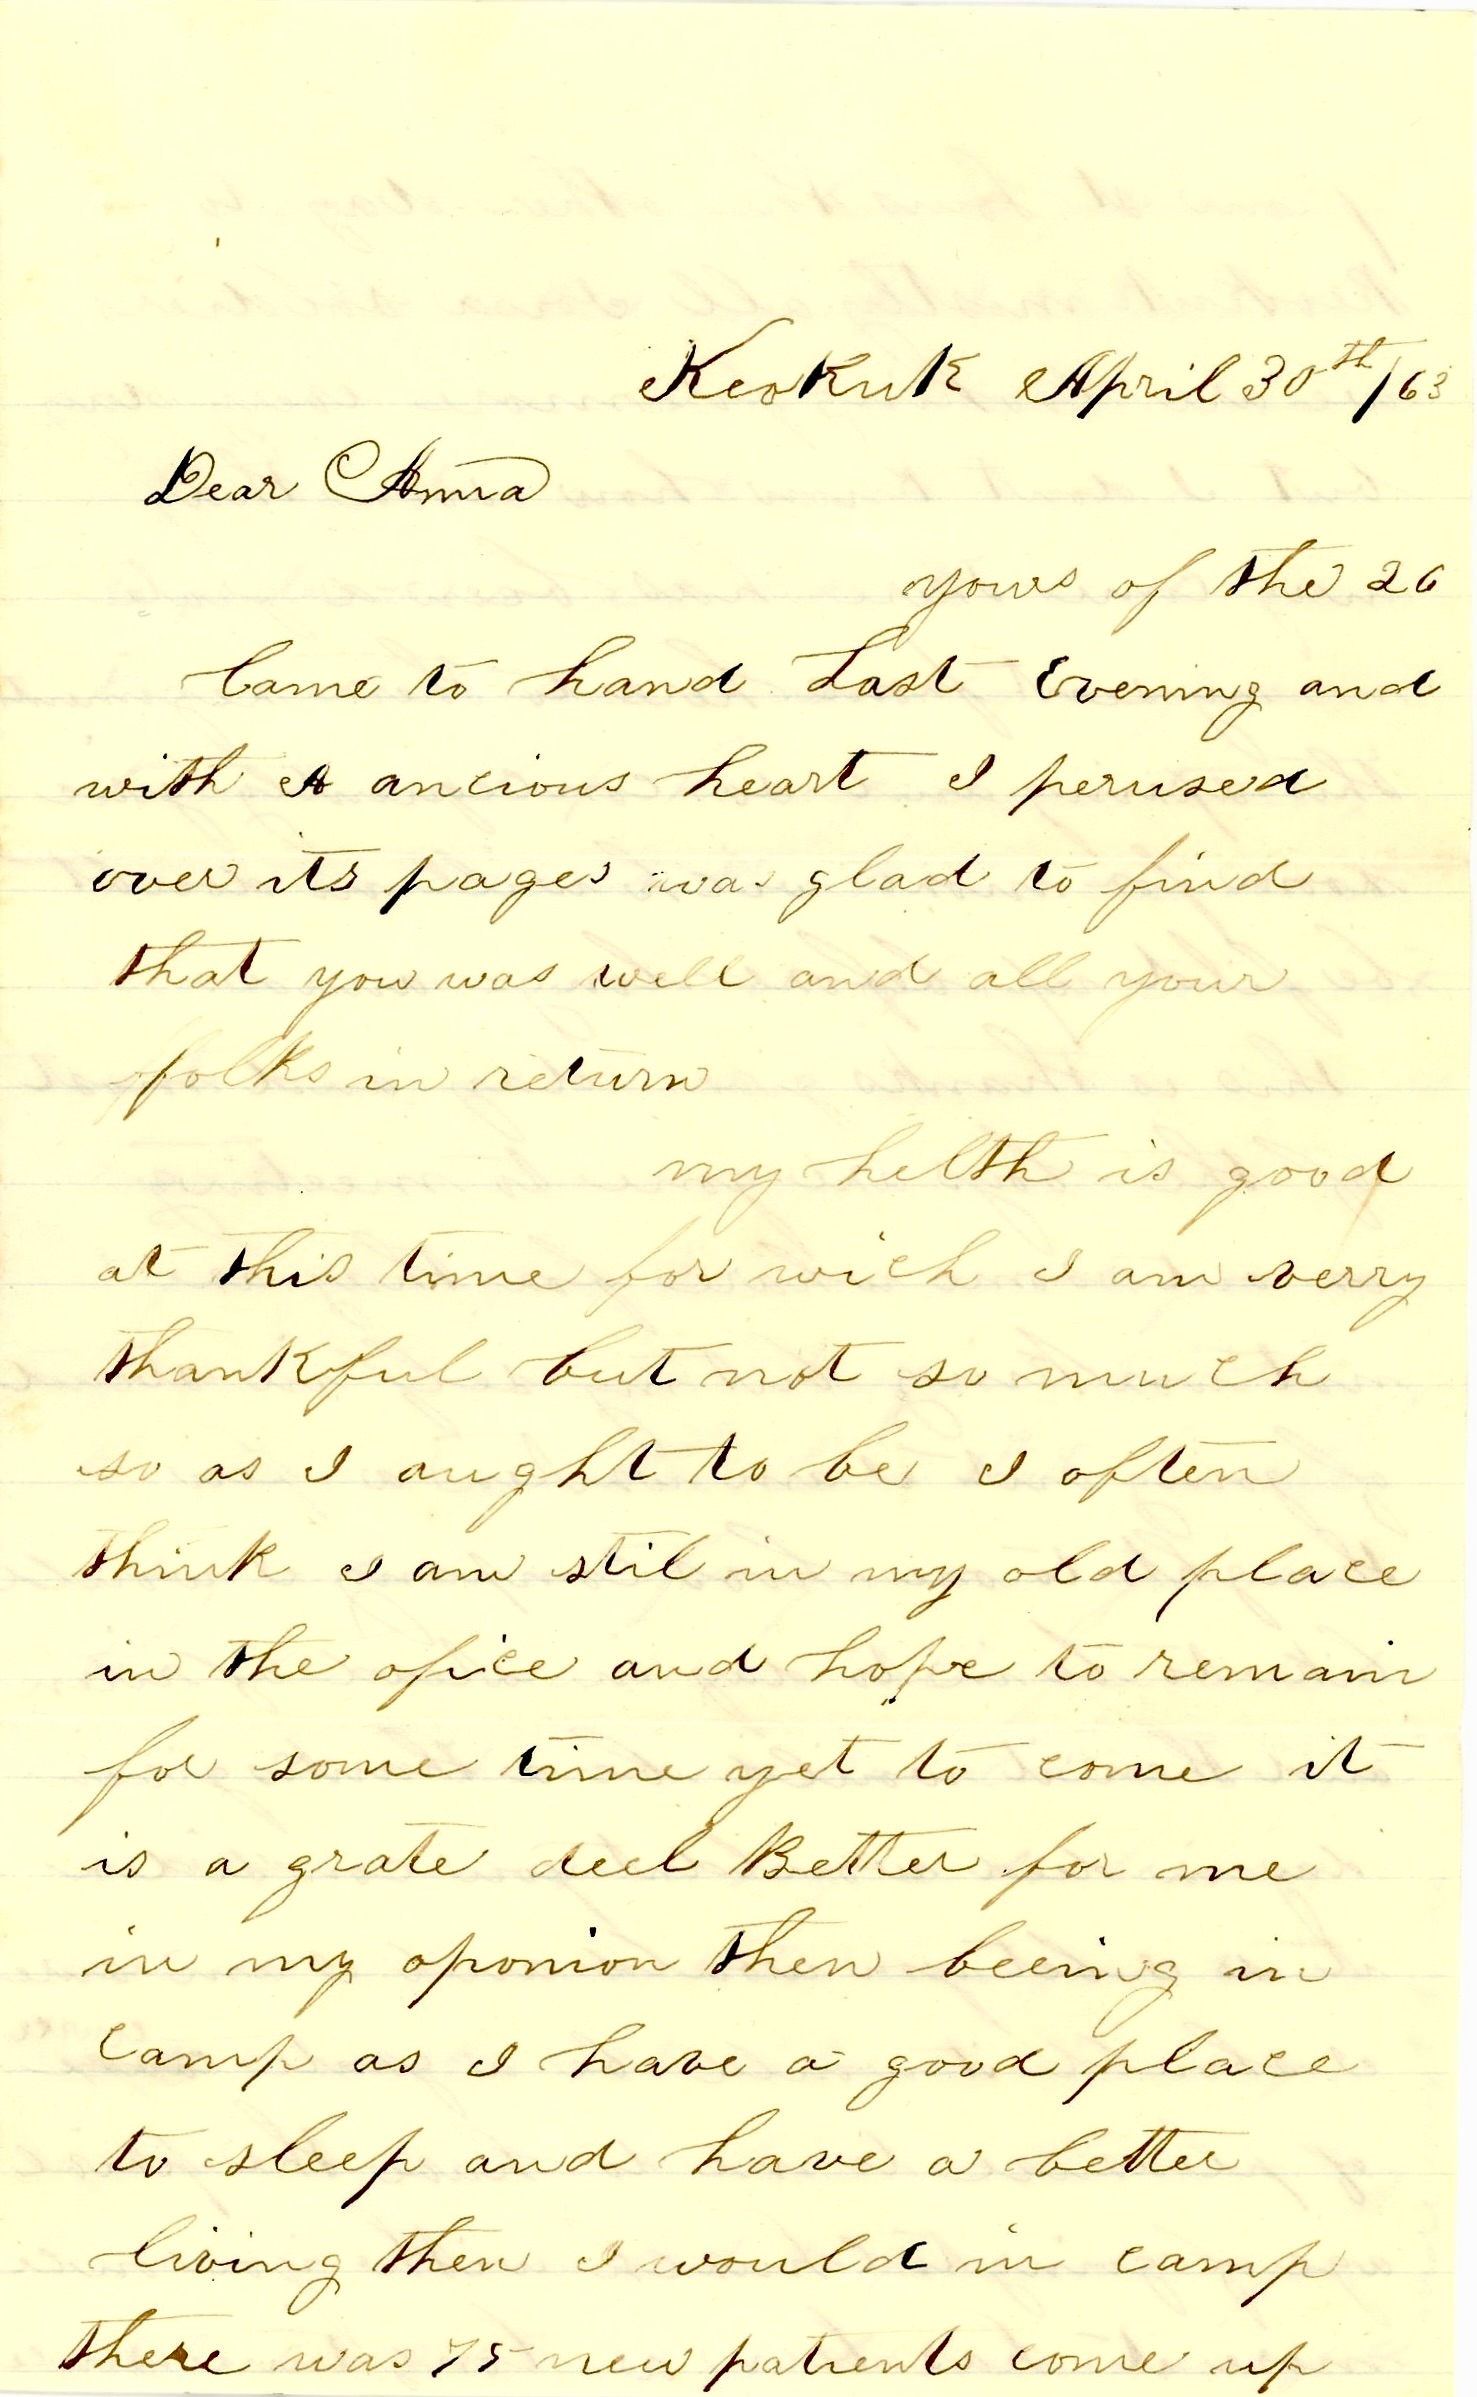 Keokuk April 30th/63
Dear Anna
yours of the 26
Came to hand Last Evening and
with A ancious heart I perused
over its pages was glad to find
that you was well and all your
folks in return
my helth is good
at this time for wich I am verry
thankful but not so much
so as I aught to be I often
think I am stil in my old place
in the ofice and hope to remain
for some time yet to come it
is a grate deel Better for me
in my oponion then beeing in
camp as I have a good place
to sleep and have a better
living then I would in camp
there was 75 new patients come up